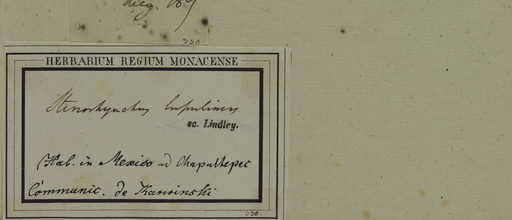 330
HERBARIUM REGIUM MONACENSE
Stenorhynchus lupulinus
ac. Lindley.
Hab. in Mexico ad Chapultepec
Communic. de Karwinski
330